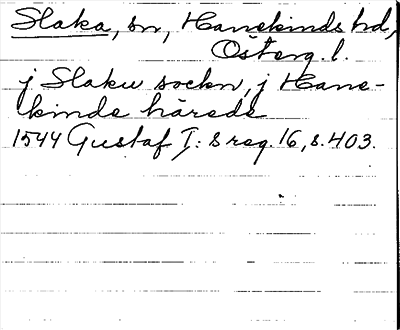 Slaka, sn, Hanekinds hd,
Österg. l.
j Slaku sockn, j Hane-
kinds härede
1544 Gustaf I:s reg. 16, s. 403.